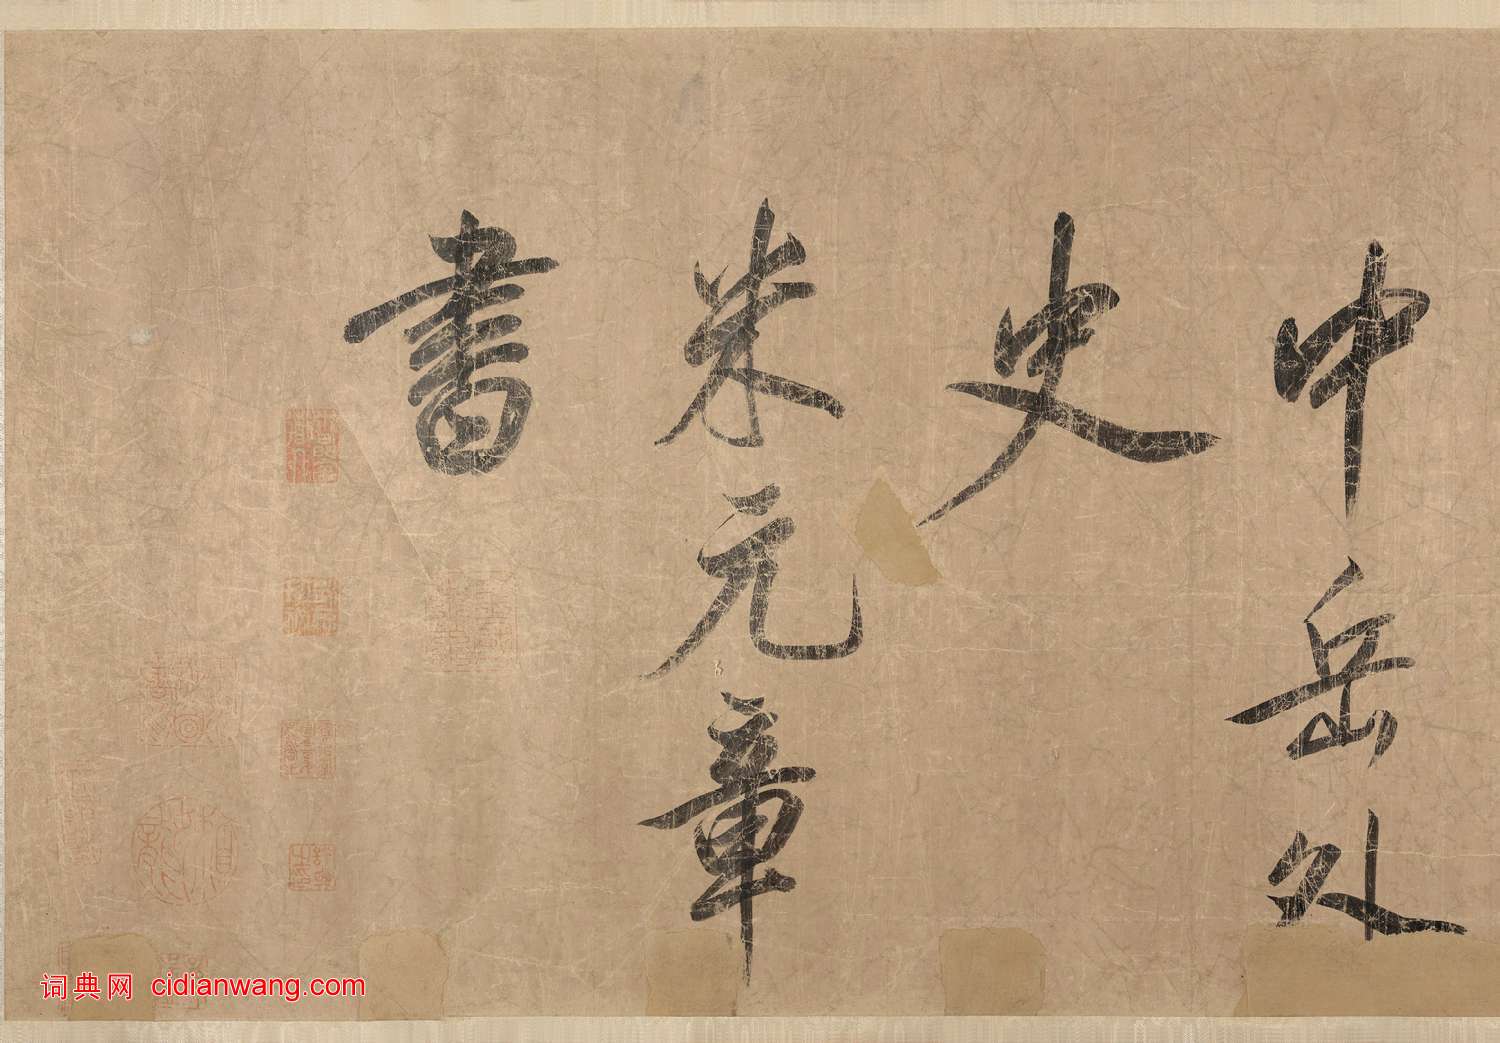 中岳外
史
米元章
書
词典网 cidianwang.com